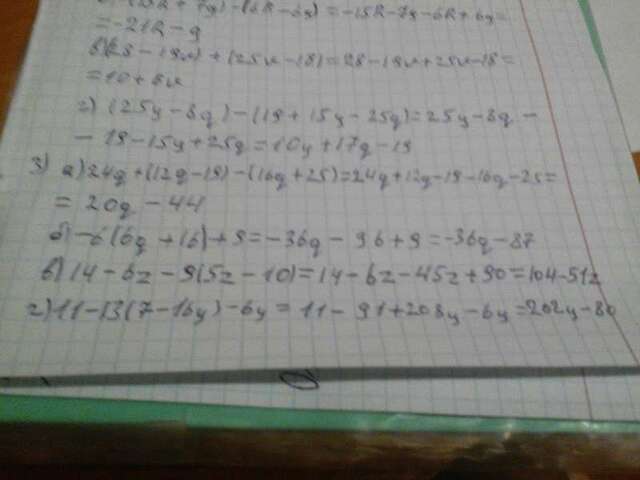 -(15k + 7g) - (6k - 6g) = -15k - 7g - 6k + 6g =
= -21k - g
в) (28 - 19x) + (25x - 18) = 28 - 19x + 25x - 18 =
= 10 + 6x
г) (25y - 8q) - (19 + 15y - 25q) = 25y - 8q -
- 19 - 15y + 25q = 10y + 17q - 19
3) а) 24q + (12q - 19) - (16q + 25) = 24q + 12q - 19 - 16q - 25 =
= 20q - 44
б) -6(6q + 16) + 9 = -36q - 96 + 9 = -36q - 87
в) 14 - 6z - 9(5z - 10) = 14 - 6z - 45z + 90 = 104 - 51z
г) 11 - 13(7 - 16y) - 6y = 11 - 91 + 208y - 6y = 202y - 80